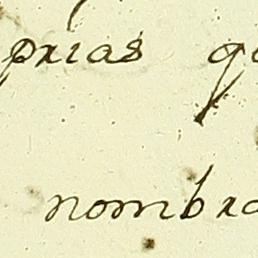 prias
nombra